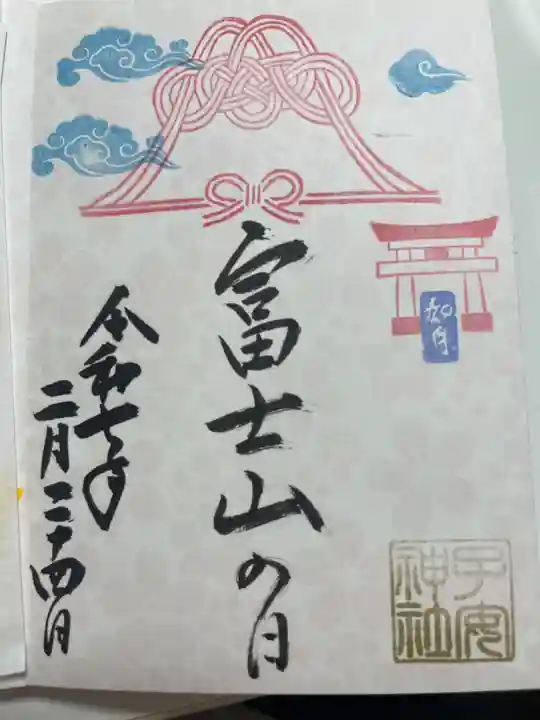 富士山の日
如月
令和七年
二月二十四日
子安
神社